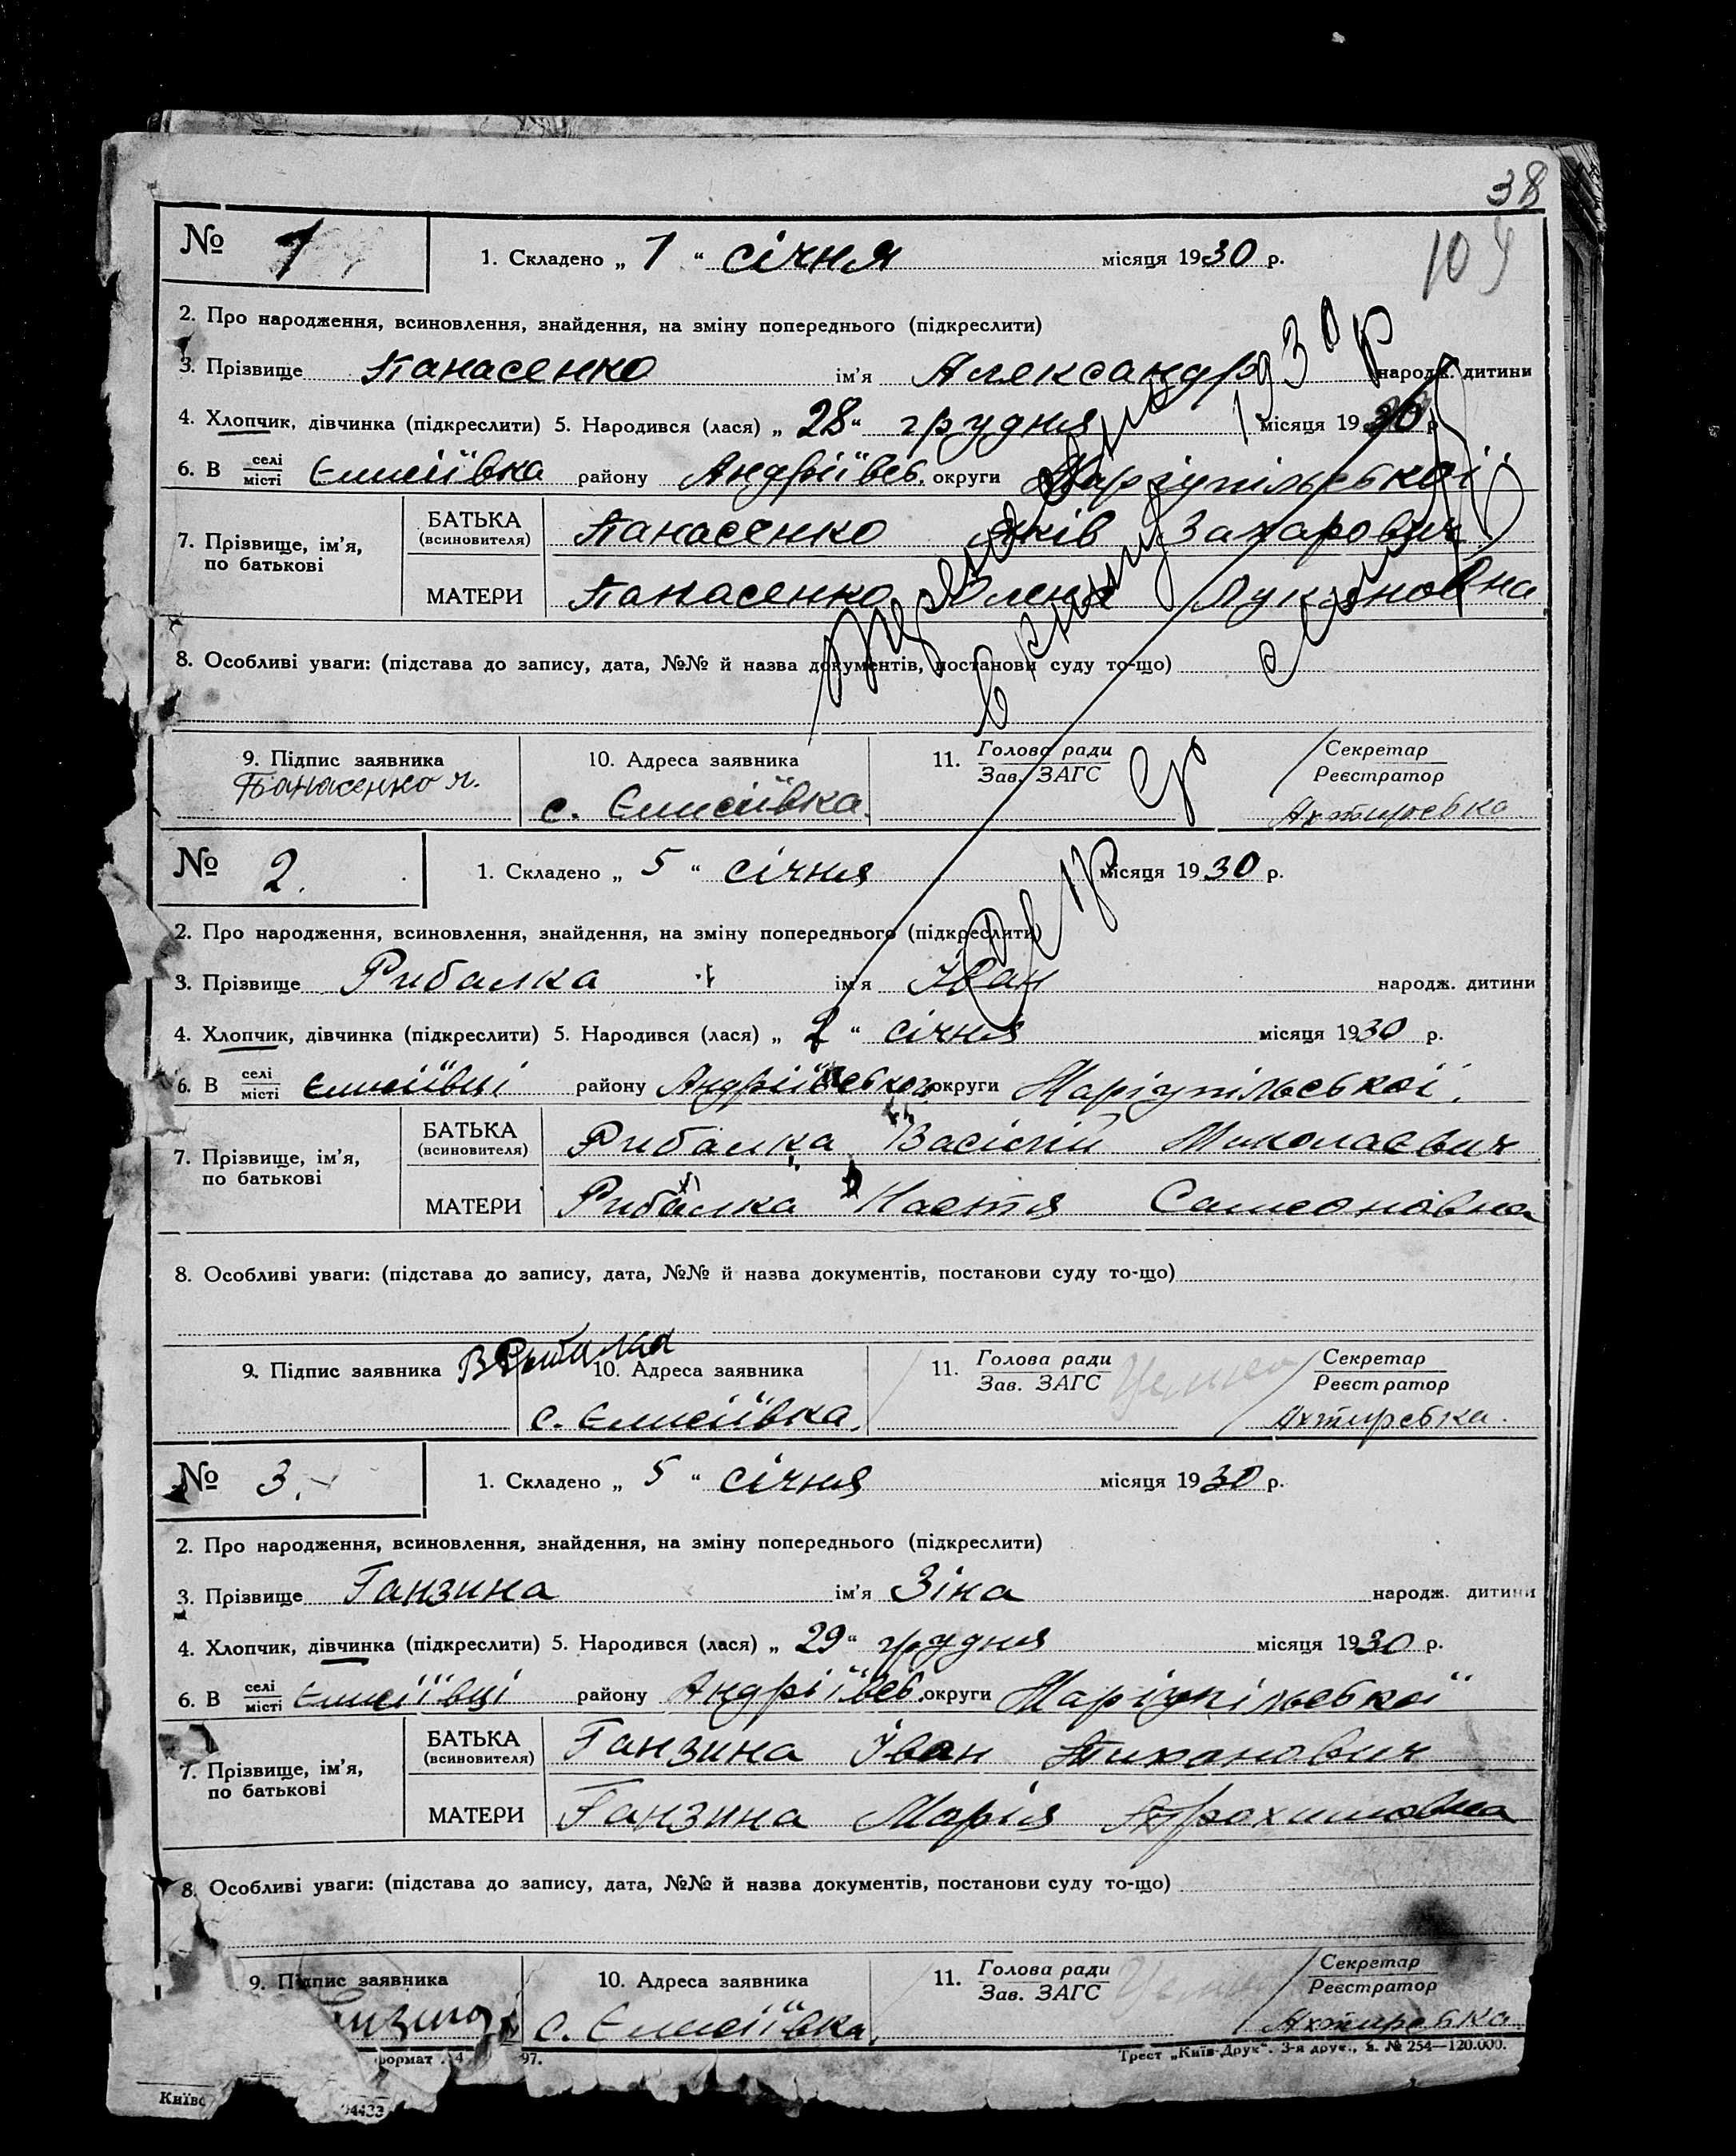 38
104
№ 1 1. Складено „ 1 “ січня місяця 1930 р.
2. Про народження, всиновлення, знайдення, на зміну попереднього (підкреслити)
3. Прізвище Панасенко ім'я Александр народж. дитини
4. Хлопчик, дівчинка (підкреслити) 5. Народився (лася) „ 28 “ грудня місяця 1930 р.
6. В селі місті Єлисіївка району Андріївсь. округи Маріупільської.
7. Прізвище, ім'я, по батькові
БАТЬКА (всиновителя) Панасенко Яків Захарович
МАТЕРИ Панасенко Олена Лукяновна
8. Особливі уваги: (підстава до запису, дата, №№ й назва документів, постанови суду то-що)
в книгу 1930 р
9. Підпис заявника 10. Адреса заявника 11. Голова ради Зав. ЗАГС Секретар Реєстратор
Панасенко Я. с. Єлисіївка. Ахтирська
№ 2. 1. Складено „ 5 “ січня місяця 1930 р.
2. Про народження, всиновлення, знайдення, на зміну попереднього (підкреслити)
3. Прізвище Рибалка ім'я Іван народж. дитини
4. Хлопчик, дівчинка (підкреслити) 5. Народився (лася) „ 2 “ січня місяця 1930 р.
6. В селі місті Єлисіївці району Андріївської округи Маріупільської.
7. Прізвище, ім'я, по батькові
БАТЬКА (всиновителя) Рибалка Васілій Миколаєвич
МАТЕРИ Рибалка Настя Самсоновна
8. Особливі уваги: (підстава до запису, дата, №№ й назва документів, постанови суду то-що)
9. Підпис заявника В Рыбалка 10. Адреса заявника 11. Голова ради Зав. ЗАГС Секретар Реєстратор
с. Єлисіївка. Ахтирська.
№ 3. 1. Складено „ 5 “ січня місяця 1930 р.
2. Про народження, всиновлення, знайдення, на зміну попереднього (підкреслити)
3. Прізвище Ганзина ім'я Зіна народж. дитини
4. Хлопчик, дівчинка (підкреслити) 5. Народився (лася) „ 29 “ грудня місяця 1930 р.
6. В селі місті Єлисіївці району Андріївсь. округи Маріупільської
7. Прізвище, ім'я, по батькові
БАТЬКА (всиновителя) Ганзина Іван Тихонович
МАТЕРИ Ганзина Марія Трохимовна
8. Особливі уваги: (підстава до запису, дата, №№ й назва документів, постанови суду то-що)
9. Підпис заявника 10. Адреса заявника 11. Голова ради Зав. ЗАГС Секретар Реєстратор
с. Єлисіївка. Ахтирська
формат 4 97. Трест „Київ-Друк“. 3-я друк., з. № 254—120.000.
Київс 04433